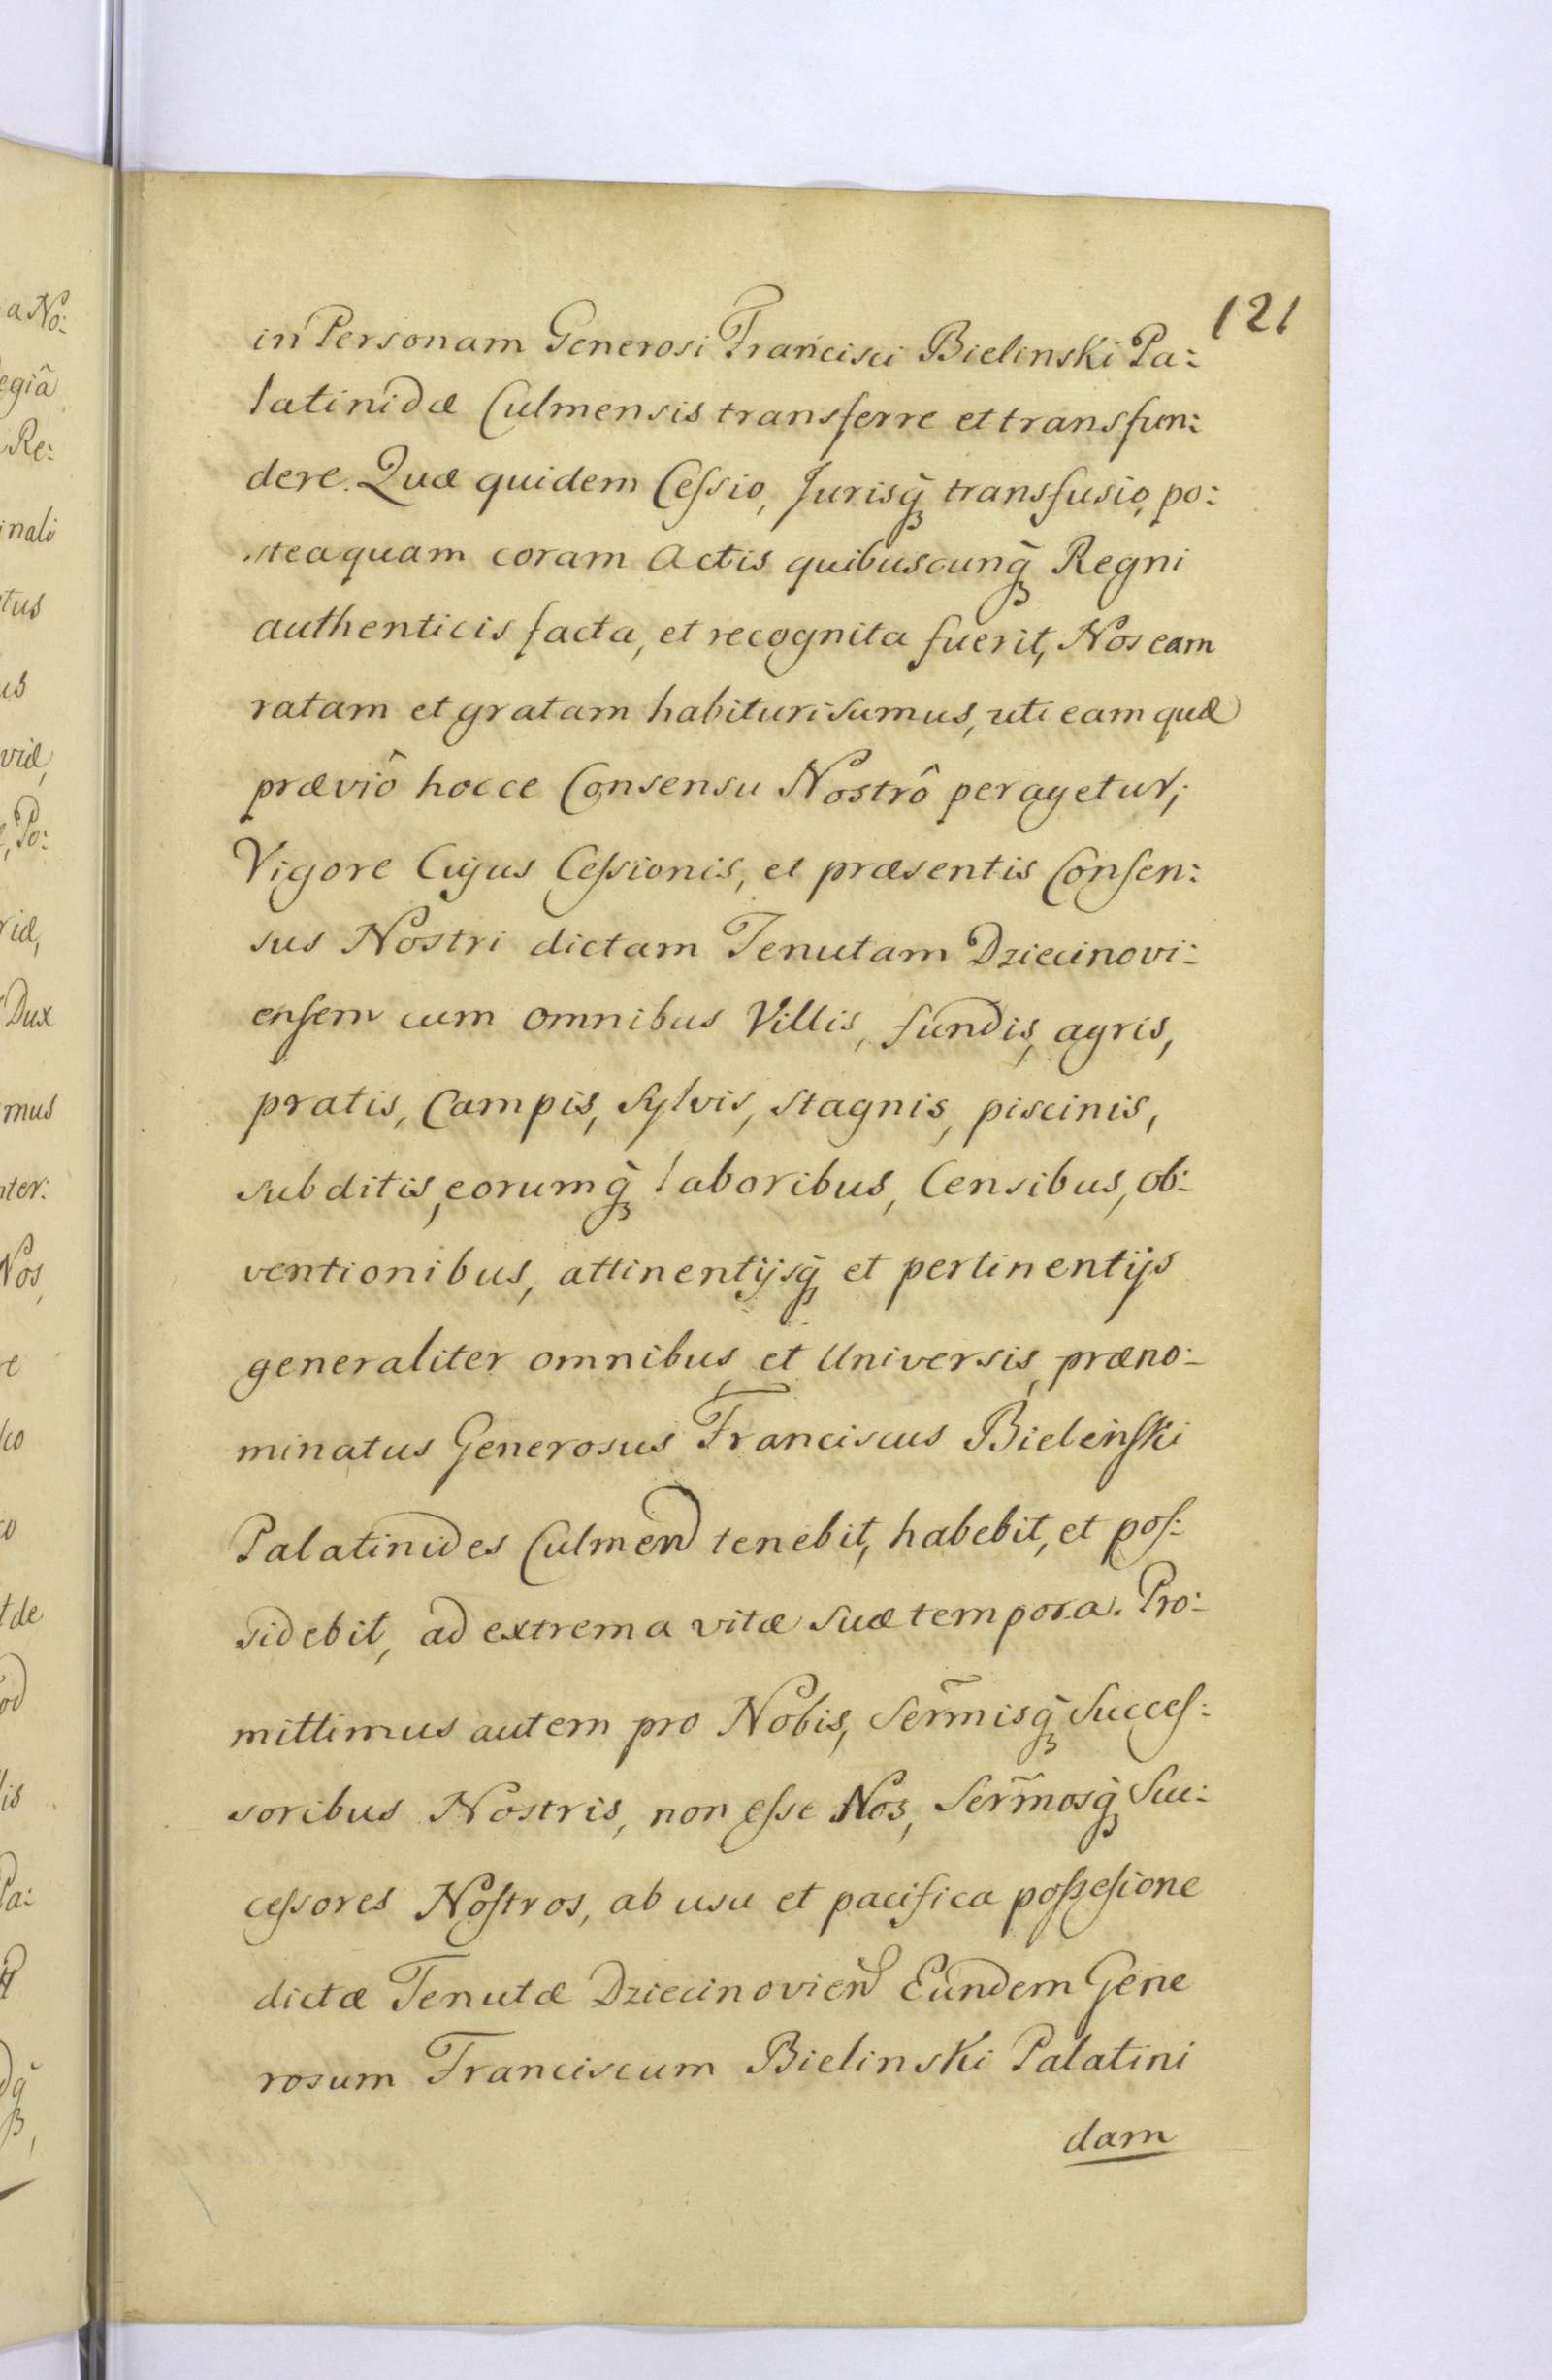 121
in Personam Generosi Francisci Bielinski Pa:
latinidæ Culmensis transferre et transfun:
dere. Quæ quidem Ceſsio, Jurisq̃ transfusio, po:
steaquam coram Actis quibuscunq̃ Regni
authenticis facta, et recognita fuerit, Nos eam
ratam et gratam habituri sumus, uti eam quæ
præviô hocce Consensu Nostrô peragetur;
Vigore Cujus Ceſsionis, et præsentis Conſen:
sus Nostri dictam Tenutam Dziecinovi:
enſem cum omnibus Villis, fundis, agris,
pratis, Campis, Sylvis, Stagnis, piscinis,
subditis, eorumq̃ laboribus, Censibus, ob:
ventionibus, attinentijsq̃ et pertinentijs
generaliter omnibus et Universis, præno:
minatus Generosus Franciscus Bielinſki
Palatinides Culmen tenebit, habebit, et poſ:
sidebit, ad extrema vitæ suæ tempora. Pro:
mittimus autem pro Nobis, Serm̃isq̃ Succeſ:
soribus Nostris, non eſse Nos, Serm̃osq̃ Suc:
ceſsores Noſtros, ab usu et pacifica poſseſione
dictæ Tenutæ Dziecinovien Eundem Gene
rosum Franciscum Bielinski Palatini
dam
a No:
egiâ
Re:
inali
tus
us
viæ,
Po:
riæ,
Dux
mus
nter:
Nos,
t de
lis
Pa: